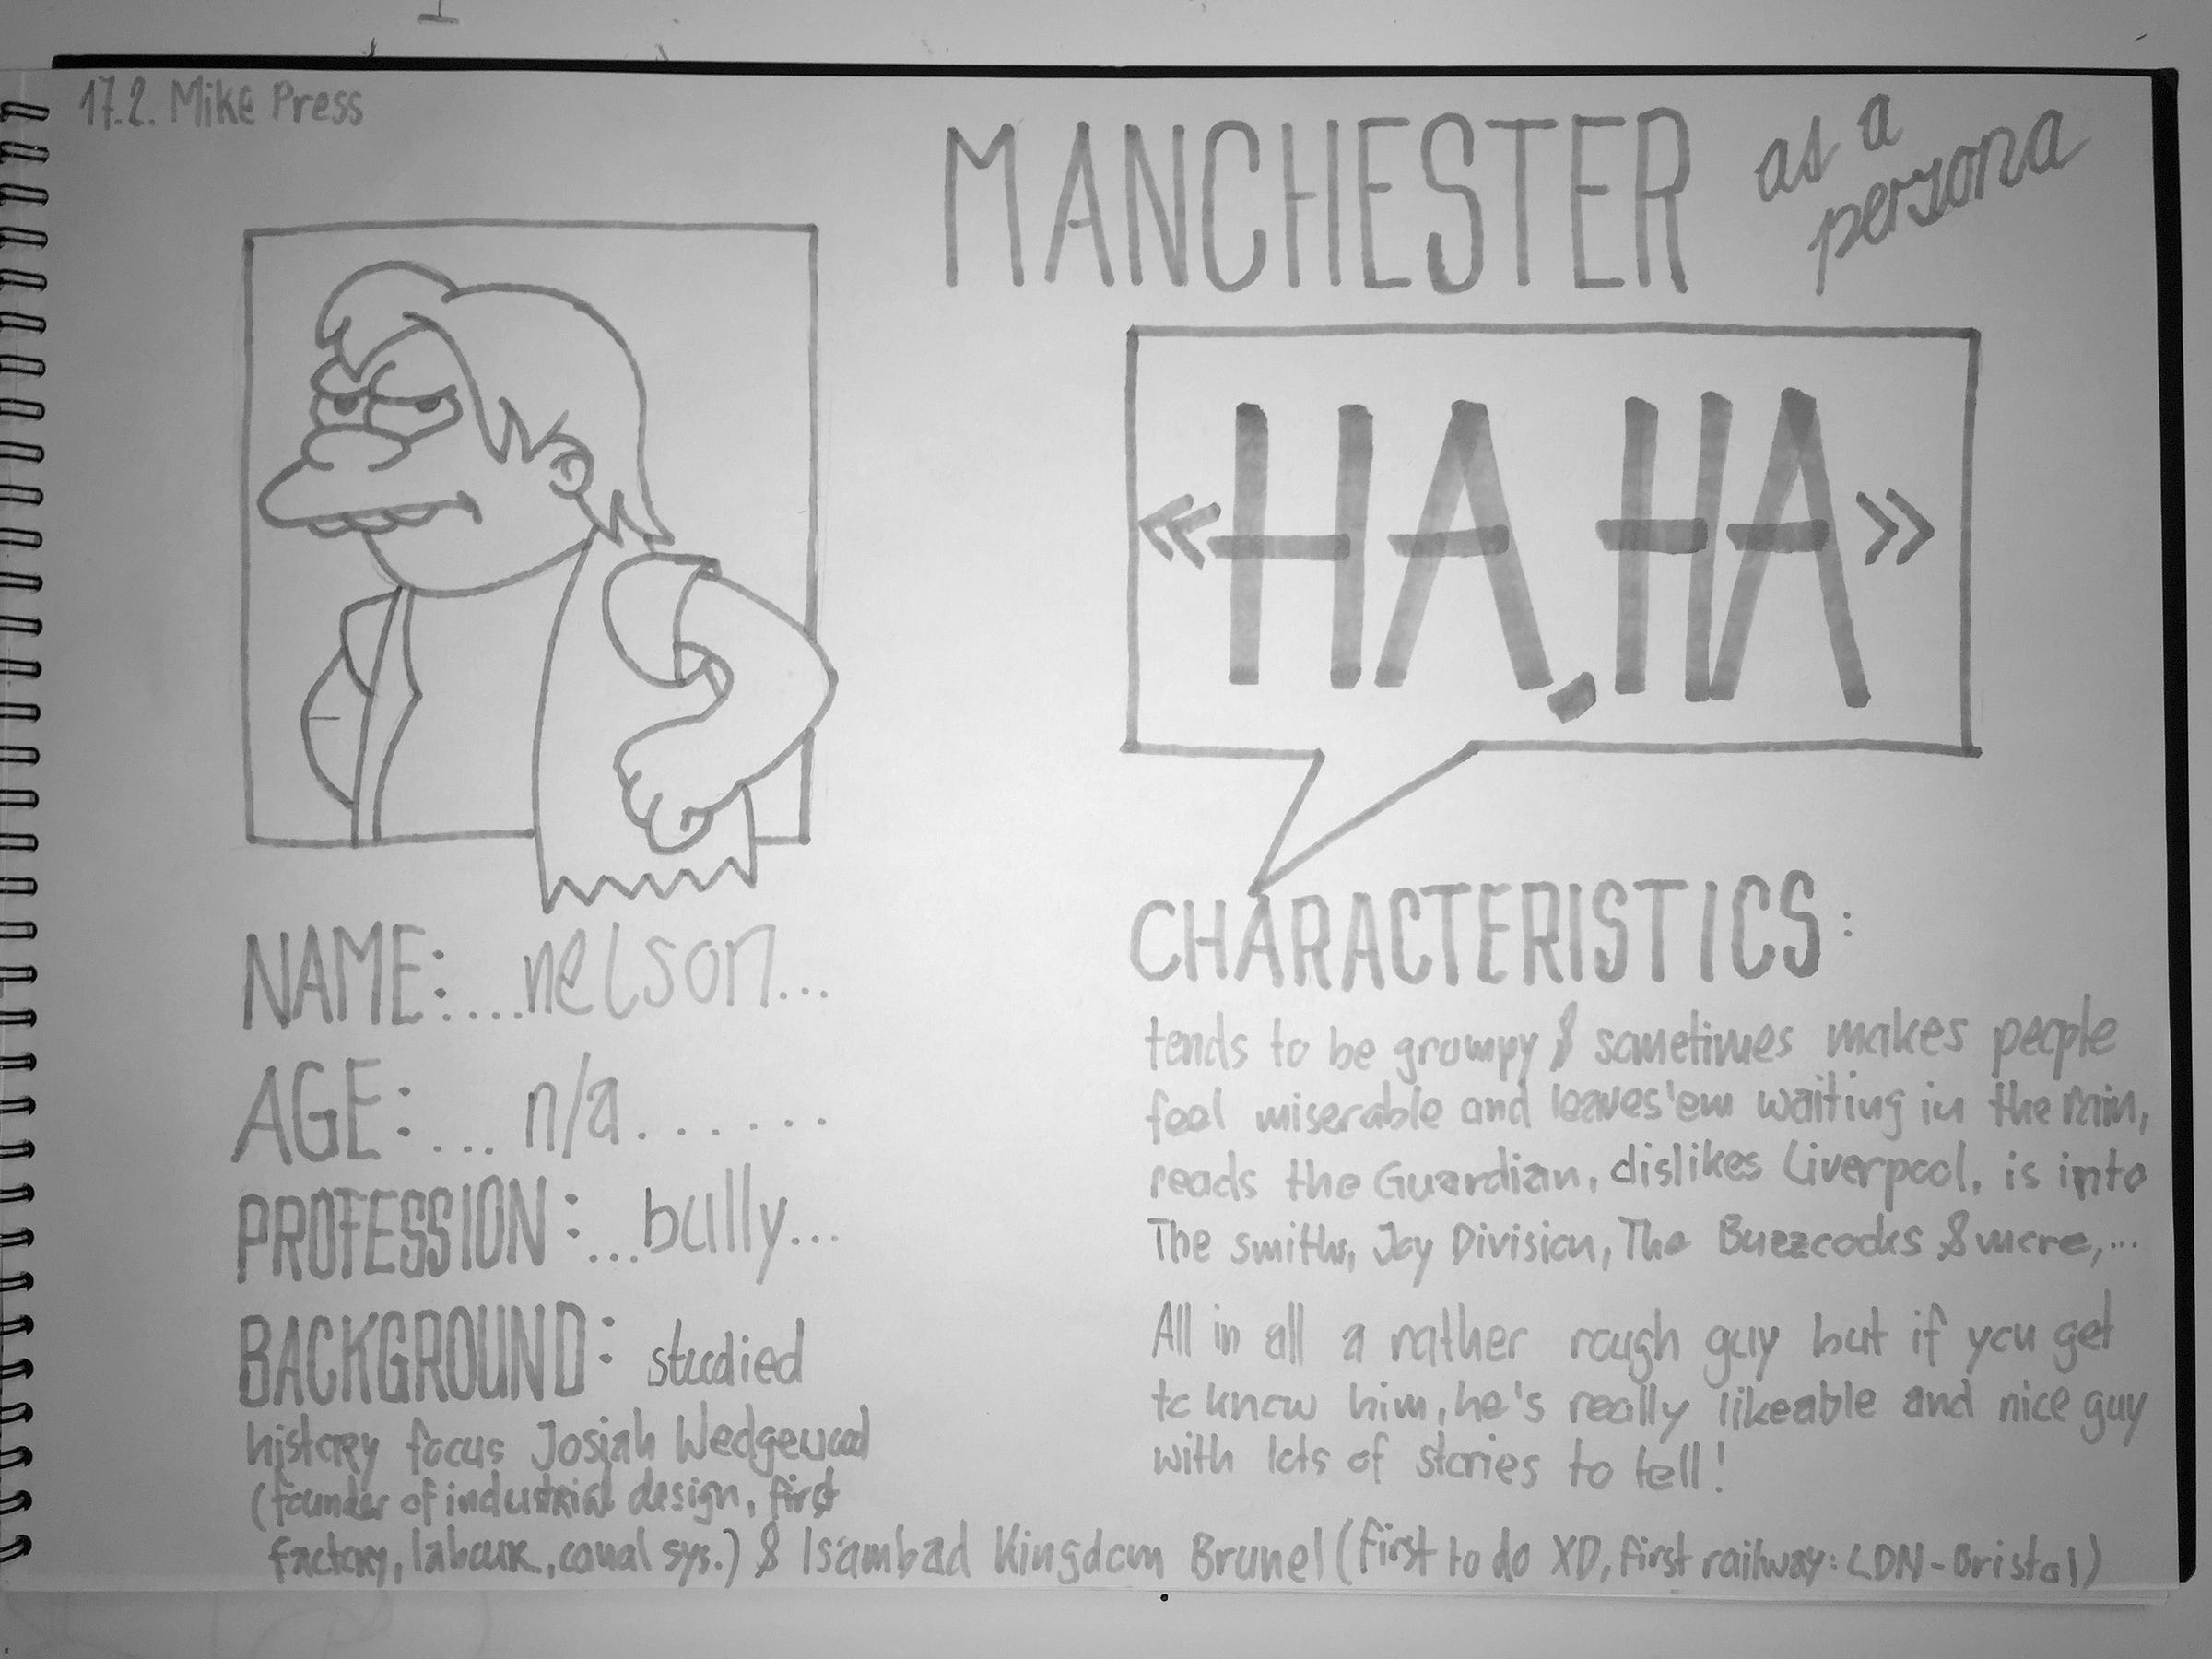 17.2. Mike Press
MANCHESTER
as a
persona
«HA, HA»
NAME:....nelson...
AGE:... n/a.......
PROFESSION:...bully...
BACKGROUND: studied
history focus Josiah Wedgewood
(founder of industrial design, first
factory, labour, canal sys.) & Isambad Kingdom Brunel (first to do XD, first railway: LDN-Bristol)
CHARACTERISTICS:
tends to be grumpy & sometimes makes people
feel miserable and leaves 'em waiting in the rain,
reads the Guardian, dislikes Liverpool, is into
The smiths, Joy Division, The Buzzcocks & more,...
All in all a rather rough guy but if you get
to know him, he's really likeable and nice guy
with lots of stories to tell!